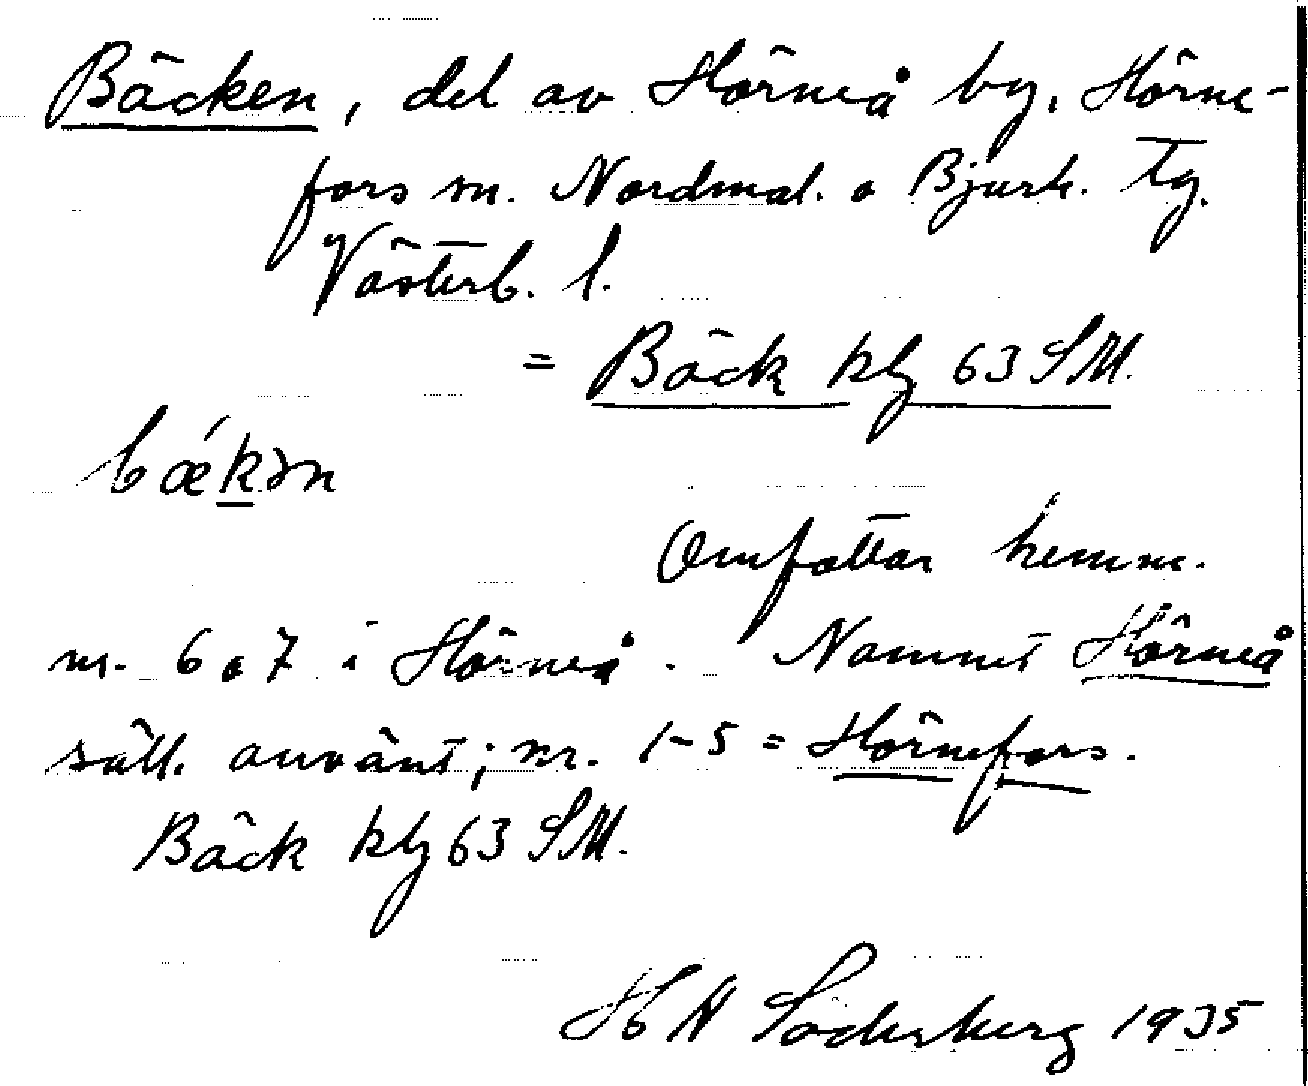 Bäcken, del av Hörneå by, Hörne-
fors sn. Nordmal. o Bjurh. Tg.
Västerb. l.
= Bäck klg 63 SM.
bǽkən
Omfattar hemm.
nr. 6 o 7 i Hörneå. Namnet Hörneå
säll. använt; nr. 1-5 = Hörnefors.
Bäck klg 63 SM.
Söderberg 1935